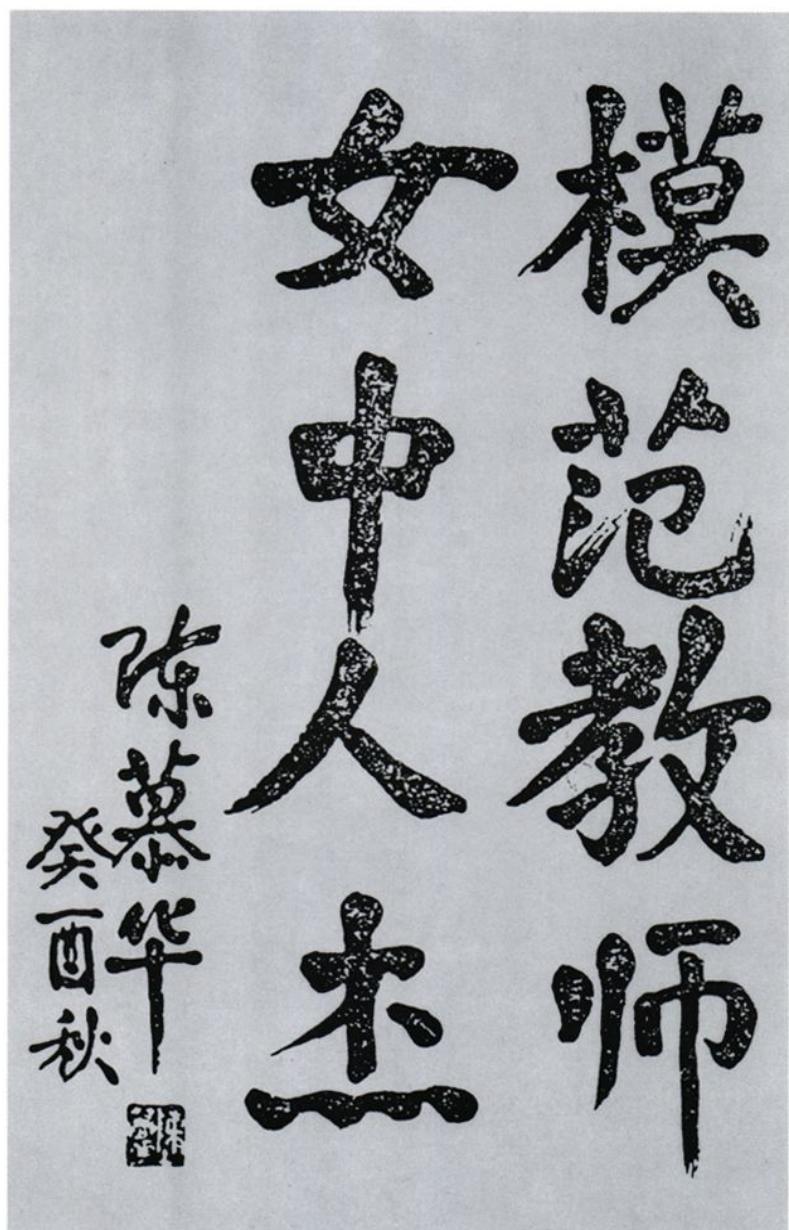 模范教师
女中人杰
陈慕华
癸酉秋